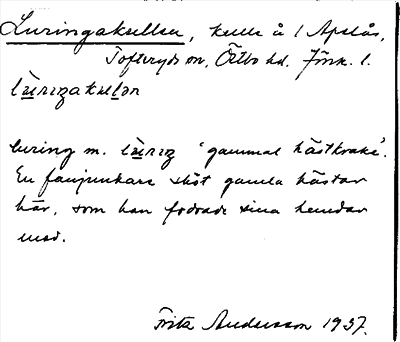 Luringakullen, kulle å 1 Apslås,
Tofteryds sn, Östbo hd. Jönk. l.
luring m. "gammal hästkrake".
En fanjunkare sköt gamla hästar
här, som han fodrade sina hundar
med.
Frits Andersson 1937.